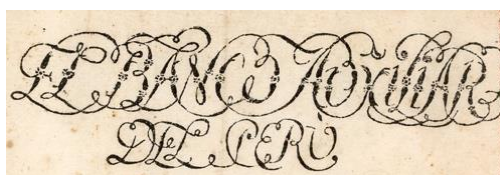 EL BANCO AUXILIAR
DEL PERÚ